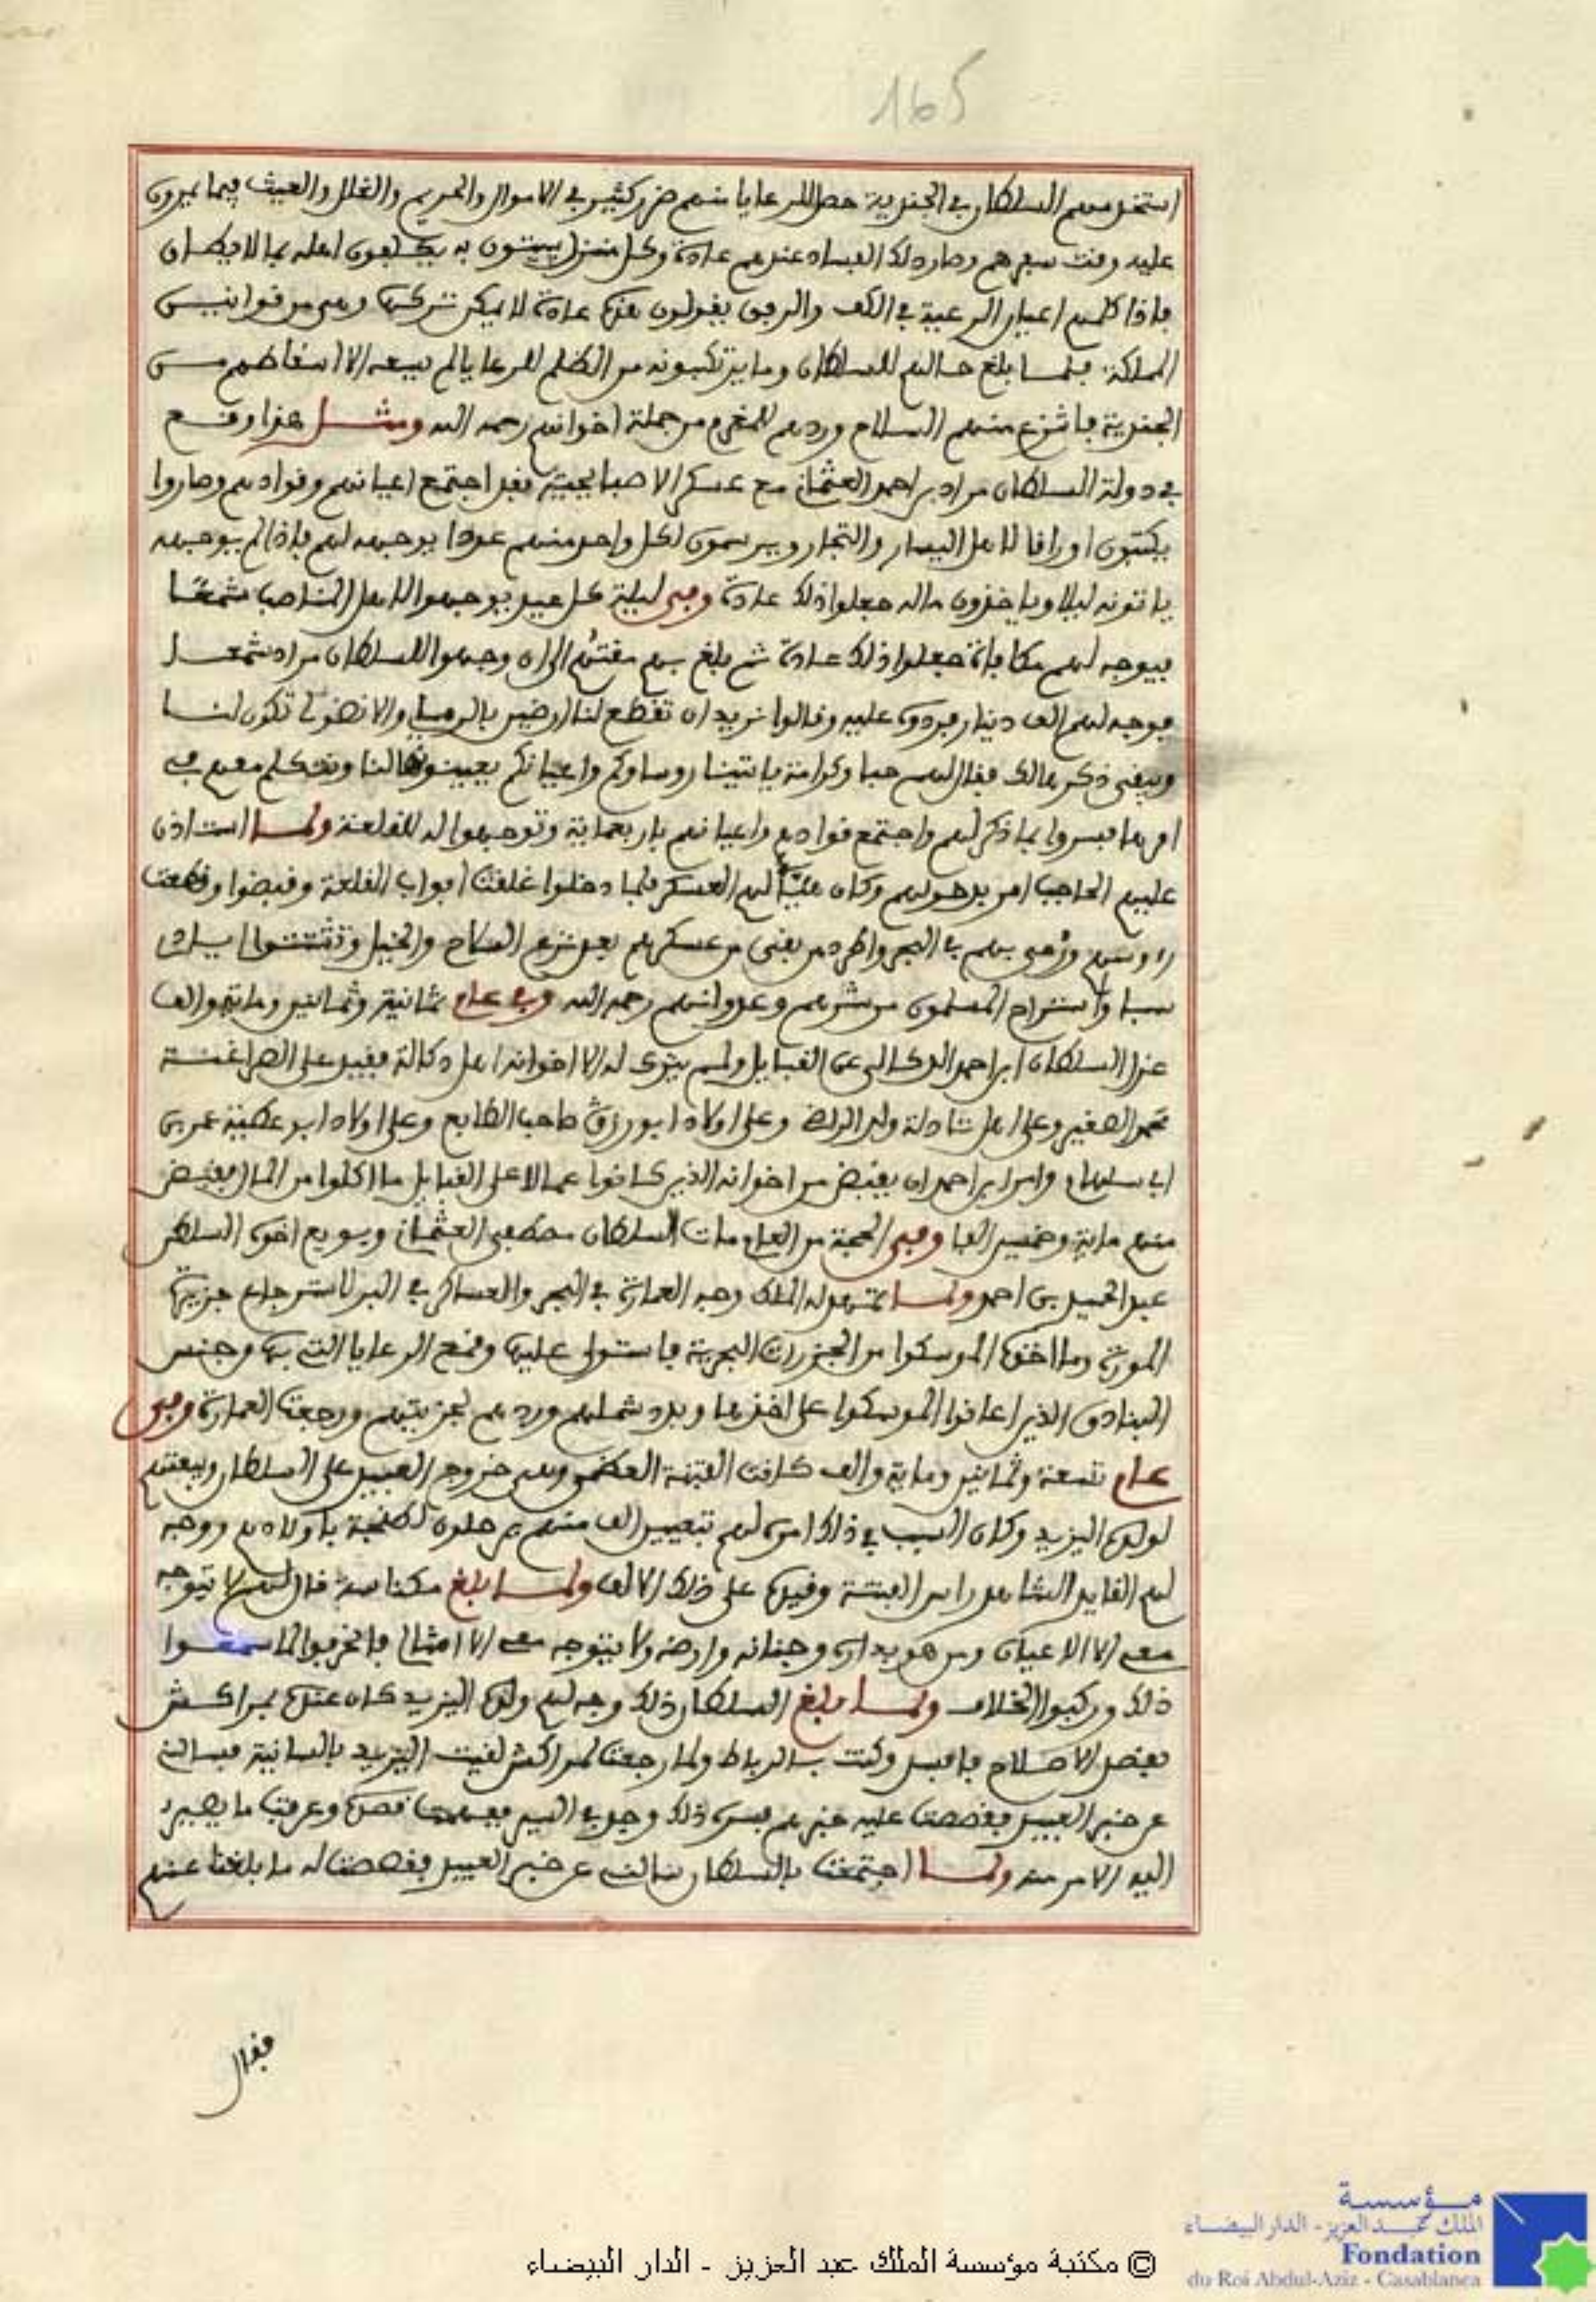 165
استخدمهم السلطان في الجندية حصل للرعايا منهم ضرر كثير في الاموال والحريم والغلل والعيث فيما يمرون
عليه وقت سفرهم وصار ذلك الفساد عندهم عادة وكل منزل يبيتون به يكلفون اهله بما لا يطاق
فاذا كلمهم اعيان الرعية في الكف والرفق يقولون هذه عادة لا يمكن تركها وهي من قوانيس
المملكة فلما بلغ حالهم للسلطان وما يرتكبونه من الظلم للرعايا لم يسعه الا اسقاطهم من
الجندية فانتزع منهم السلاح وردهم للمغرم من جملة اخوانهم رحمه الله ومثل هذا وقع
في دولة السلطان مراد بن احمد العثماني مع عسكر الاصبايحية فقد اجتمع اعيانهم وقوادهم وصاروا
يكتبون اوراقا لاهل اليسار والتجار ويرسمون لكل واحد منهم عددا يوجهه لهم فاذا لم يوجهه
ياتونه ليلا وياخذون ماله جعلوا ذلك عادة وفي ليلة كل عيد يوجهوا لاهل المناصب شمعا
فيوجه لهم مكافاة جعلوا ذلك عادة ثم بلغ بهم الى ان وجهوا للسلطان مراد شمعا
فوجه لهم الف دينار فردوه عليه وقالوا نريد ان تقطع لنا ارضين والاناضول تكون لنا
ويبقى ذكرها لك فقال لهم حبا وكرامة ياتينا روساوكم واعيانكم يعينونها لنا ونتكلم معهم في
امرها فسروا بما ذكر لهم واجتمع قوادهم واعيانهم باربعماية وتوجهوا له للقلعة ولما استاذن
عليهم الحاجب امر بدخولهم وكان لهم العسكر فلما دخلوا غلقت ابواب القلعة وقبضوا وقطعت
رءوسهم ورمي بهم في البحر واطرد من بقي من عسكرهم بعد نزع السلاح والخيل وتشتتوا ايدي
سبا واستراح المسلمون من شرهم وعدوانهم رحمه الله وفي عام ثمانية وثمانين وماية والف
عزل السلطان ابن احمد الدكالي عن القبايل ولم يترك له الا اخوانه اهل دكالة فقيد على الصراغنة
محمد الصغير وعلى اهل تادلة ولد الراضي وعلى اولاد ابو رزق صاحب الطابع وعلى اولاد ابو عطية عمر بن
ابي سلهام وامر ابن احمد ان يقبض من اخوانه الذين كانوا عمالا على القبايل ما اكلوا من المال فقبض
منهم ماية وخمسين الفا وفي الحجة من العام مات السلطان مصطفى العثماني وبويع اخوه السلطان
عبد الحميد بن احمد ولما تمهد له الملك وجه العمارة في البحر والعساكر في البر لاسترجاع جزيرة
المورة وما اخذه الموسكوا من الجزرات البحرية فاستولى عليها وقمع الرعايا التي بها وجنس
البنادق الذين اعانوا الموسكوا على اخذها وبدد شملهم وردهم لجزيتهم ورجعت العمارة وفي
عام تسعة وثمانين وماية والف كانت الفتنة العظمى وهي خروج العبيد على السلطان وبيعتهم
لولده اليزيد وكان السبب في ذلك امره لهم بتعيين الف منهم يرحلون لطنجة باولادهم ووجه
لهم القايد الشاهد راس الفتنة وقيده على ذلك الالف ولما بلغ مكناسة قال لهم لا يتوجه
معي الا الاعيان ومن هو بداره وجنانه وارضه ولا يتوجه معي الا امثالي فانحرفوا لما سمعوا
ذلك وركبوا الخلاف ولما بلغ السلطان ذلك وجه لهم ولده اليزيد كان عنده بمراكش
بقصد الاصلاح فاقبل وكنت بالرباط ولما رجعت لمراكش لقيت اليزيد بالسانية فسالني
عن خبر العبيد فقصصت عليه خبرهم فسره ذلك وجد في السير ففهمت قصده وعرفت ما يصير
اليه الامر منه ولما اجتمعت بالسلطان سالني عن خبر العبيد فقصصت له ما بلغنا عنهم
فقال
مؤسسة
الملك عبد العزيز - الدار البيضاء
Fondation
du Roi Abdul-Aziz - Casablanca
© مكتبة مؤسسة الملك عبد العزيز - الدار البيضاء